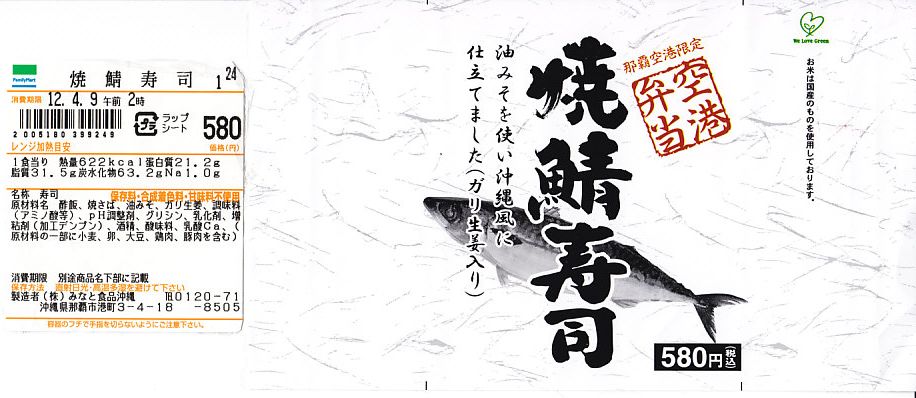 FamilyMart
焼鯖寿司 1 24
消費期限 12. 4. 9 午前 2時
2 005180 399249
プラ
ラップ
シート
580
レンジ加熱目安
価格(円)
1食当り 熱量622kcal蛋白質21.2g
脂質31.5g炭水化物63.2gNa1.0g
名称 寿司
保存料・合成着色料・甘味料不使用
原材料名 酢飯、焼さば、油みそ、ガリ生姜、調味料
(アミノ酸等)、pH調整剤、グリシン、乳化剤、増
粘剤(加工デンプン)、酒精、酸味料、乳酸Ca、(
原材料の一部に小麦、卵、大豆、鶏肉、豚肉を含む)
消費期限 別途商品名下部に記載
保存方法 直射日光・高温多湿を避けて下さい
製造者(株)みなと食品沖縄 ℡0120-71
沖縄県那覇市港町3-4-18 -8505
容器のフチで手指を切らないようにご注意下さい。
油みそを使い沖縄風に
仕立てました(ガリ生姜入り)
焼鯖寿司
那覇空港限定
空港
弁当
580円(税込)
We Love Green
お米は国産のものを使用しております。